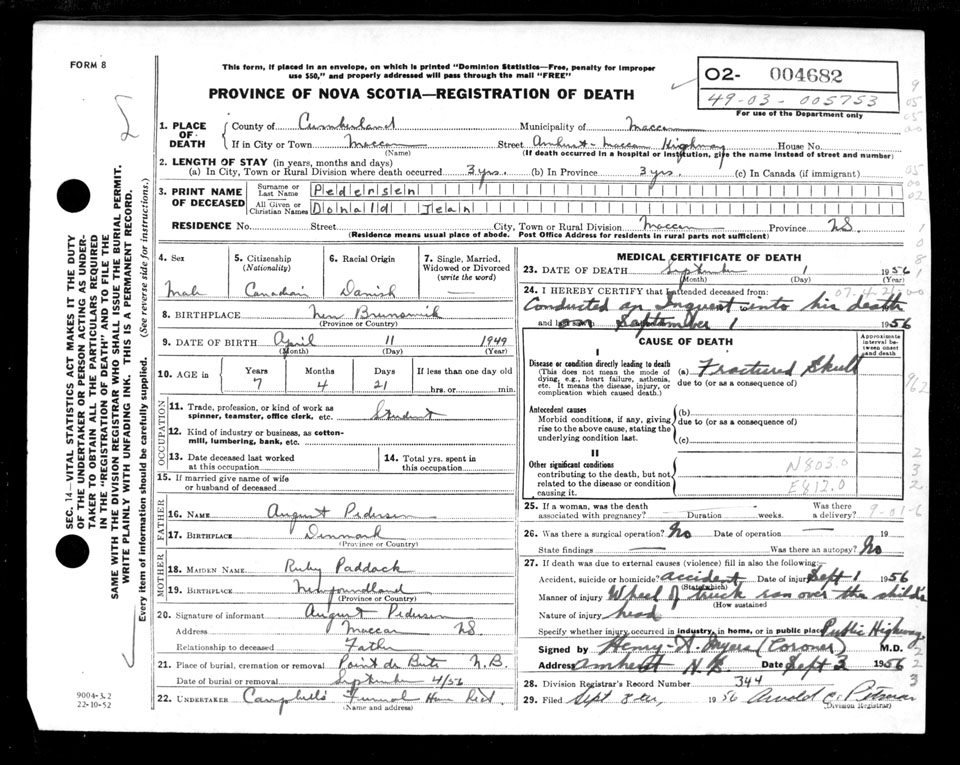 FORM 8
This form, if placed in an envelope, on which is printed "Dominion Statistics—Free, penalty for improper
use $50," and properly addressed will pass through the mail "FREE"
PROVINCE OF NOVA SCOTIA—REGISTRATION OF DEATH
O2- 004682
49-03-005753
For use of the Department only
SEC. 14—VITAL STATISTICS ACT MAKES IT THE DUTY
OF THE UNDERTAKER OR PERSON ACTING AS UNDER-
TAKER TO OBTAIN ALL THE PARTICULARS REQUIRED
IN THE "REGISTRATION OF DEATH" AND TO FILE THE
SAME WITH THE DIVISION REGISTRAR WHO SHALL ISSUE THE BURIAL PERMIT.
WRITE PLAINLY WITH UNFADING INK. THIS IS A PERMANENT RECORD.
Every item of information should be carefully supplied. (See reverse side for instructions.)
1. PLACE OF DEATH
County of Cumberland Municipality of Maccan
If in City or Town Maccan Street Amherst-Maccan Highway House No.
(Name) (If death occurred in a hospital or institution, give the name instead of street and number)
2. LENGTH OF STAY (in years, months and days)
(a) In City, Town or Rural Division where death occurred 3 yrs. (b) In Province 3 yrs. (c) In Canada (if immigrant)
3. PRINT NAME OF DECEASED
Surname or Last Name Pedersen
All Given or Christian Names Donald Jean
RESIDENCE No. Street City, Town or Rural Division Maccan Province NS
(Residence means usual place of abode. Post Office Address for residents in rural parts not sufficient)
4. Sex
Male
5. Citizenship
(Nationality)
Canadian
6. Racial Origin
Danish
7. Single, Married,
Widowed or Divorced
(write the word)
—
8. BIRTHPLACE New Brunswick
(Province or Country)
9. DATE OF BIRTH April 11 1949
(Month) (Day) (Year)
10. AGE IN
Years Months Days If less than one day old
7 4 21 hrs. or min.
OCCUPATION
11. Trade, profession, or kind of work as
spinner, teamster, office clerk, etc. Student
12. Kind of industry or business, as cotton-
mill, lumbering, bank, etc.
13. Date deceased last worked
at this occupation
14. Total yrs. spent in
this occupation
15. If married give name of wife
or husband of deceased
FATHER
16. NAME August Pedersen
17. BIRTHPLACE Denmark
(Province or Country)
MOTHER
18. MAIDEN NAME Ruby Paddock
19. BIRTHPLACE Newfoundland
(Province or Country)
20. Signature of informant August Pedersen
Address Maccan NS
Relationship to deceased Father
21. Place of burial, cremation or removal Point de Bute N.B.
Date of burial or removal September 4/56
22. UNDERTAKER Campbells Funeral Home
(Name and address)
9004-3.2
22-10-52
MEDICAL CERTIFICATE OF DEATH
23. DATE OF DEATH September 1 1956
(Month) (Day) (Year)
24. I HEREBY CERTIFY that I attended deceased from:
Conducted an Inquest into his death
on September 1 1956
CAUSE OF DEATH
Approximate
interval be-
tween onset
and death
I
Disease or condition directly leading to death
(This does not mean the mode of
dying, e.g., heart failure, asthenia,
etc. It means the disease, injury, or
complication which caused death.)
(a) Fractured Skull
due to (or as a consequence of)
Antecedent causes
Morbid conditions, if any, giving
rise to the above cause, stating the
underlying condition last.
(b)
due to (or as a consequence of)
(c)
II
Other significant conditions
contributing to the death, but not
related to the disease or condition
causing it.
N803.0
E812.0
25. If a woman, was the death
associated with pregnancy? Duration weeks. Was there
a delivery?
9-01-6
26. Was there a surgical operation? No Date of operation — 19
State findings — Was there an autopsy? No
27. If death was due to external causes (violence) fill in also the following:
Accident, suicide or homicide? accident Date of injury Sept 1 1956
(State which)
Manner of injury Wheel of truck ran over the child's
(How sustained
Nature of injury head
Specify whether injury occurred in industry, in home, or in public place Public Highway
Signed by Henry A. Myers (Coroner) M.D.
Address Amherst N.S. Date Sept 3 1956
28. Division Registrar's Record Number 344
29. Filed Sept 8th, 1956 Arnold C. Pitman
(Division Registrar)